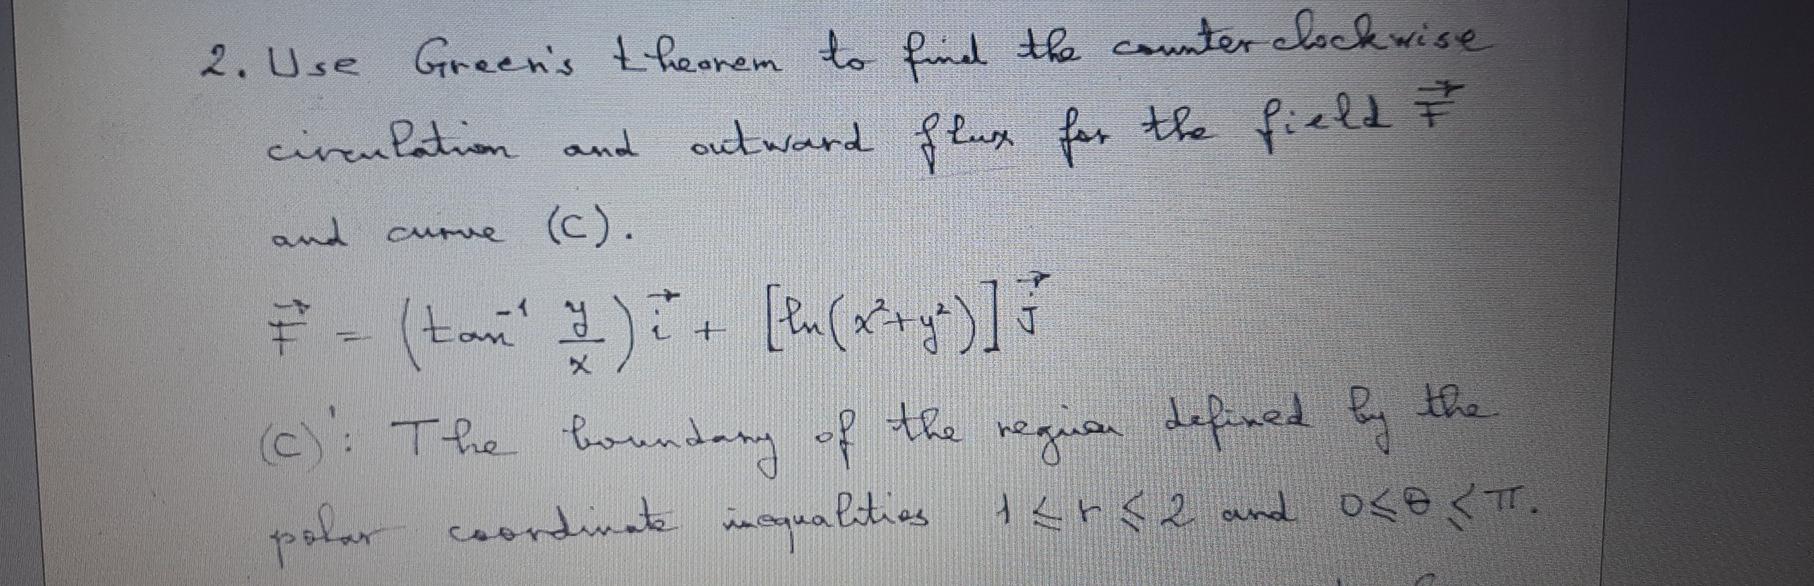 2. Use Green's theorem to find the counterclockwise
circulation and outward flux for the field F⃗
and curve (C).
F⃗ = (tan⁻¹ y/x) i⃗ + [ln(x²+y²)] j⃗
(C)': The boundary of the region defined by the
polar coordinate inequalities 1 ≤ r ≤ 2 and 0 ≤ θ ≤ π.